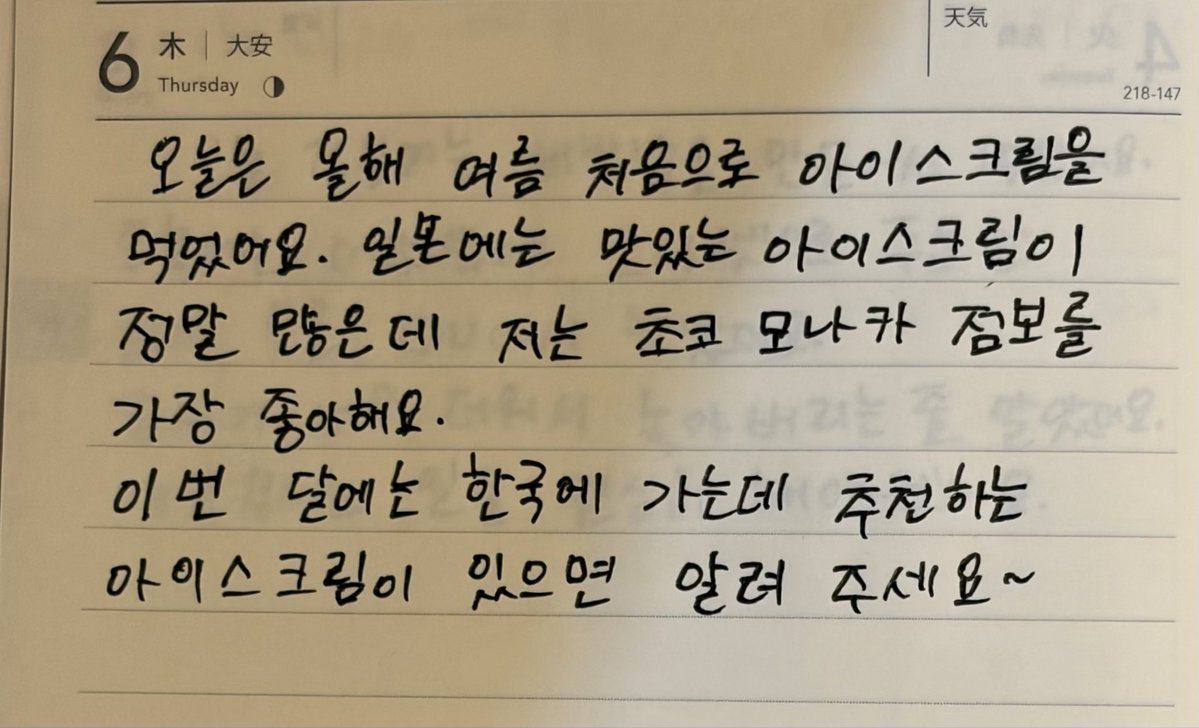 天気
6 木 | 大安
Thursday
218-147
오늘은 올해 여름 처음으로 아이스크림을
먹었어요. 일본에는 맛있는 아이스크림이
정말 많은데 저는 초코 모나카 점보를
가장 좋아해요.
이번 달에는 한국에 가는데 추천하는
아이스크림이 있으면 알려 주세요~